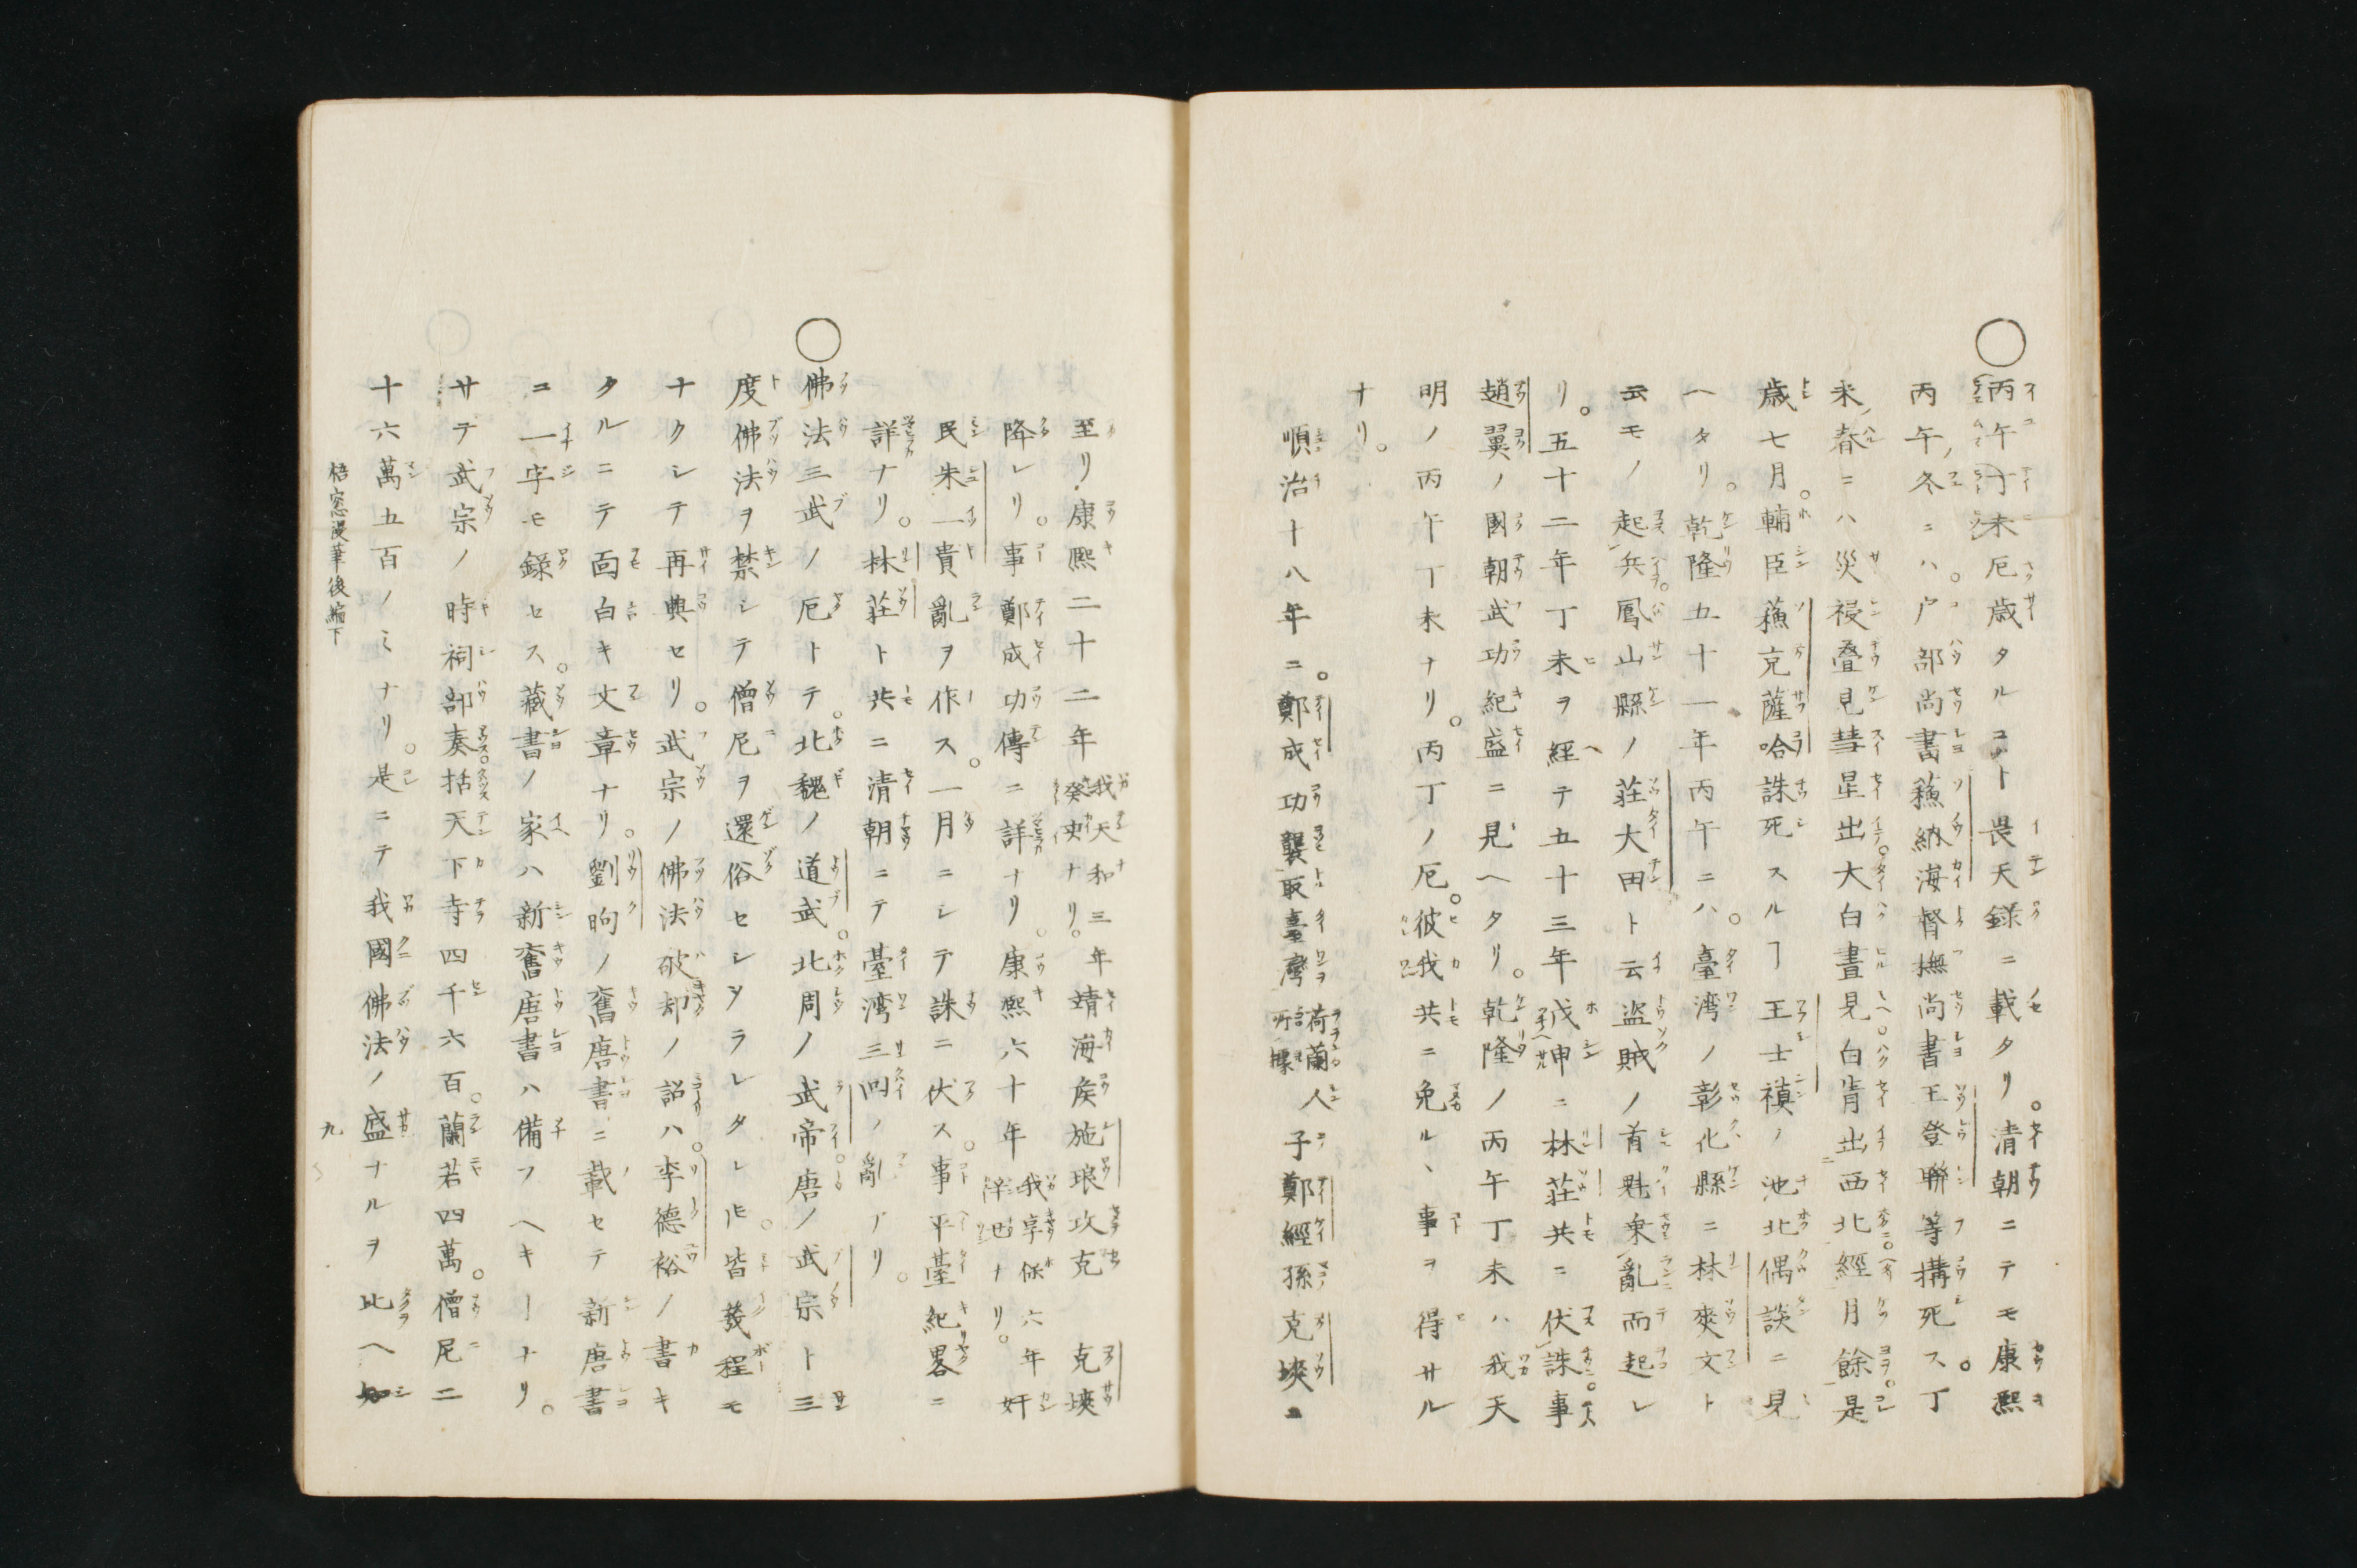 ○丙午丁未厄歳タルコト畏天録ニ載タリ。清朝ニテモ康熙
丙午ノ冬ニハ。戸部尚書蘓納海督撫尚書王登聯等搆死ス。丁
未ノ春ニハ災祲疊見彗星出大白晝見白眚出西北經月餘是
歳七月。輔臣蘓克薩哈誅死スルヿ王士禛ノ池北偶談ニ見
ヘタリ。乾隆五十一年丙午ニハ。臺湾ノ彰化縣ニ林爽文ト
云モノ起兵。鳳山縣ノ莊大田ト云盗賊ノ首魁乗亂而起レ
リ。五十二年丁未ヲ經テ五十三年戊申ニ林莊共ニ伏誅事
趙翼ノ國朝武功紀盛ニ見ヘタリ。乾隆ノ丙午丁未ハ我天
明ノ丙午丁未ナリ。丙丁ノ厄。彼我共ニ免ル丶事ヲ得サル
ナリ。
順治十八年ニ。鄭成功襲取臺灣荷蘭人所據子鄭經孫克塽ニ
至リ康熙二十二年我天和三年癸亥ナリ。靖海侯施琅攻克克塽
降レリ。事鄭成功傳ニ詳ナリ。康熙六十年我享保六年辛丑ナリ。奸
民朱一貴亂ヲ作ス。一月ニシテ誅ニ伏ス。事平臺紀畧ニ
詳ナリ。林莊ト共ニ清朝ニテ臺湾三四ノ亂アリ。
○佛法三武ノ厄トテ。北魏ノ道武。北周ノ武帝。唐ノ武宗ト三
度佛法ヲ禁シテ僧尼ヲ還俗セシメラレタレ𪜈。皆幾程モ
ナクシテ再興セリ。武宗ノ佛法破却ノ詔ハ。李德裕ノ書キ
タルニテ面白キ文章ナリ。劉昫ノ舊唐書ニ載セテ新唐書
ニ一字モ録セス。藏書ノ家ハ新舊唐書ハ備フヘキーナリ。
サテ武宗ノ時祠部奏。括天下寺四千六百。蘭若四萬。僧尼二
十六萬五百ノミナリ。是ニテ我國佛法ノ盛ナルヲ比ヘ知
梧窓漫筆後編下
九